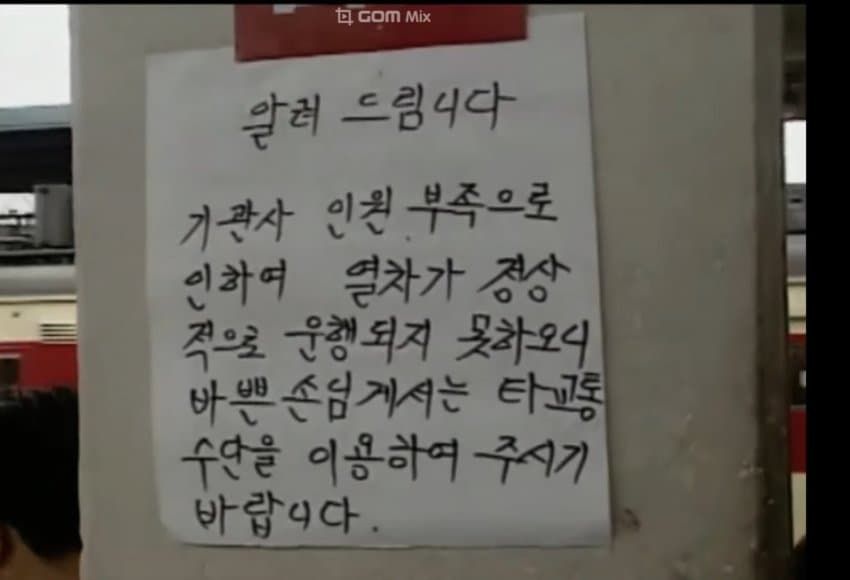 GOM Mix
알려 드립니다
기관사 인원 부족으로
인하여 열차가 정상
적으로 운행되지 못하오니
바쁜 손님게서는 타교통
수단을 이용하여 주시기
바랍니다.